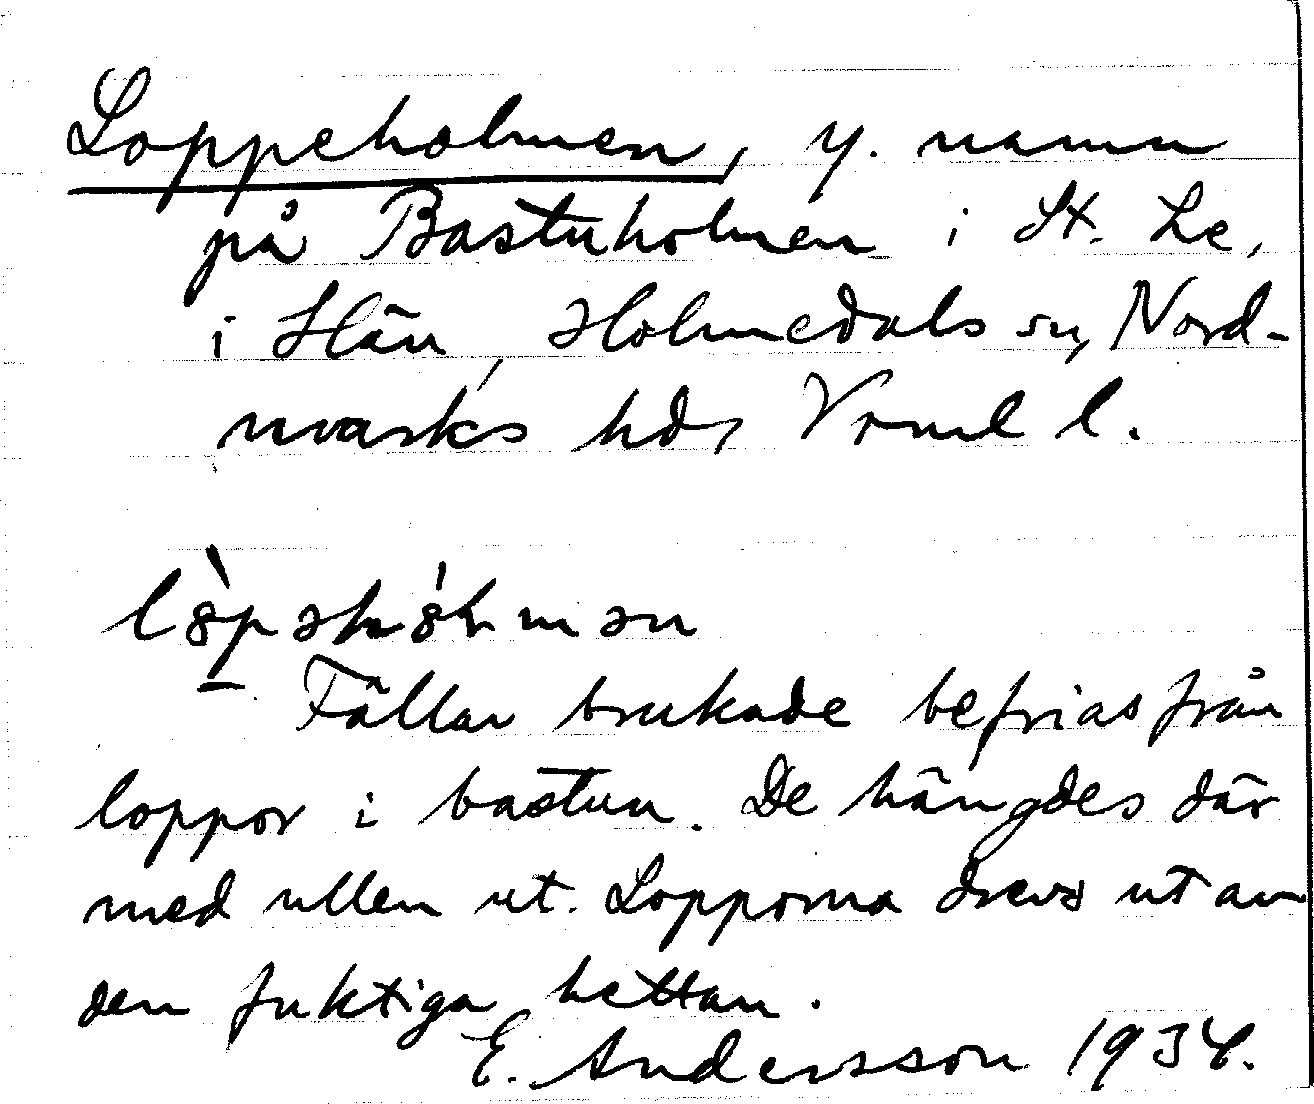 Loppeholmen, y. namn
på Bastuholmen i St. Le,
i Hän, Holmedals sn, Nord-
marks hd, Vrml l.
Fällar brukade befrias från
loppor i bastun. De hängdes där
med ullen ut. Lopporna drevs ut av
den fuktiga hettan.
E. Andersson 1934.